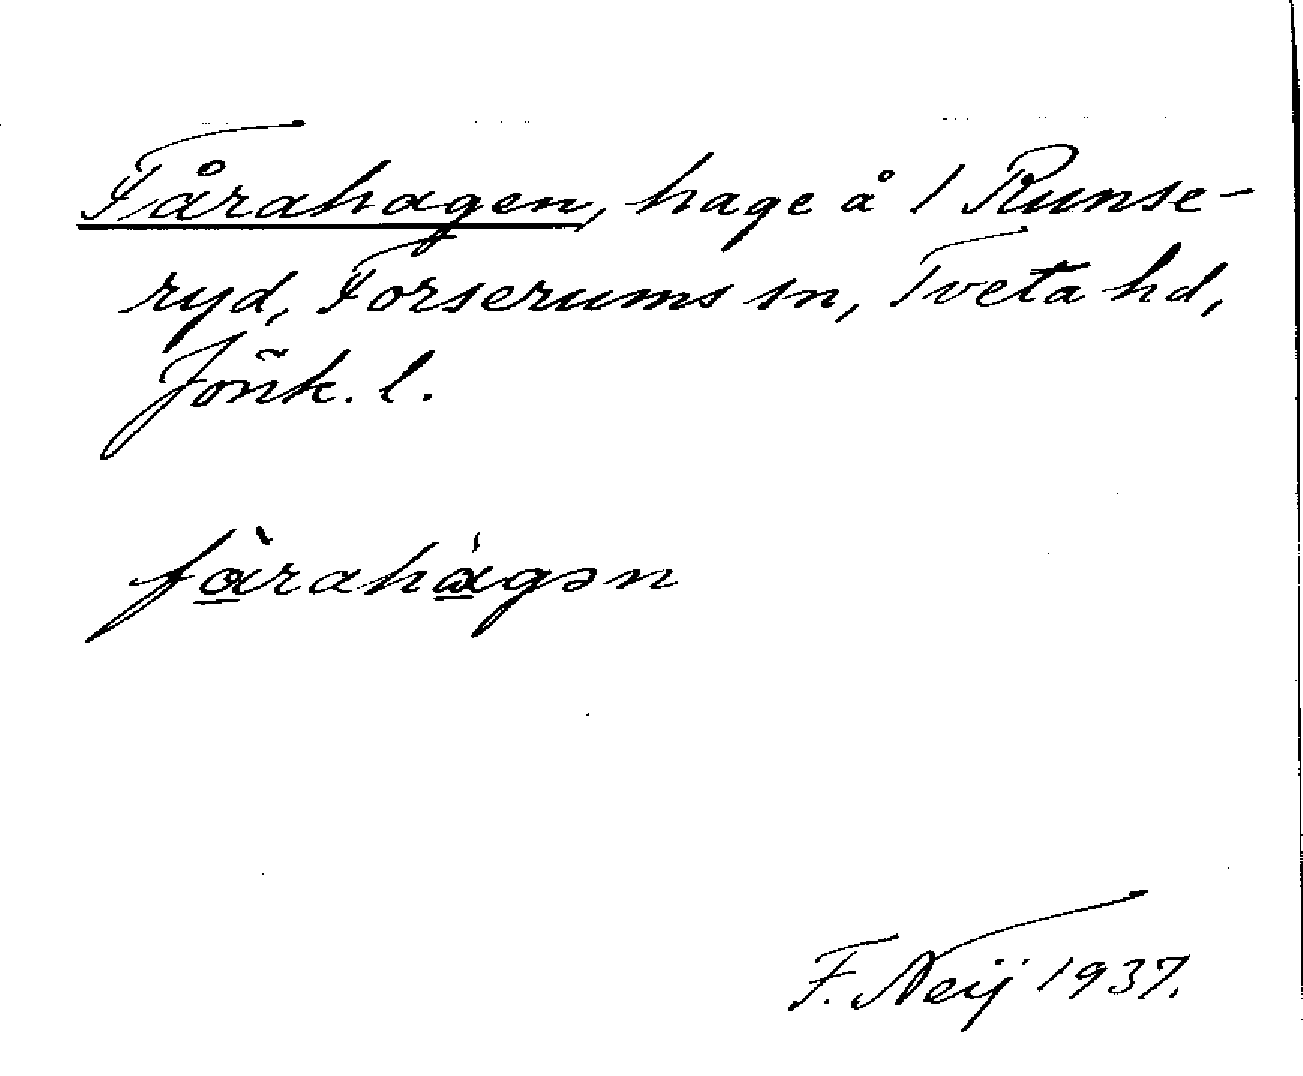 Fårahagen, hage å 1 Runse-
ryd, Forserums sn, Tveta hd,
Jönk. l.
fàrahágən
F. Neij 1937.